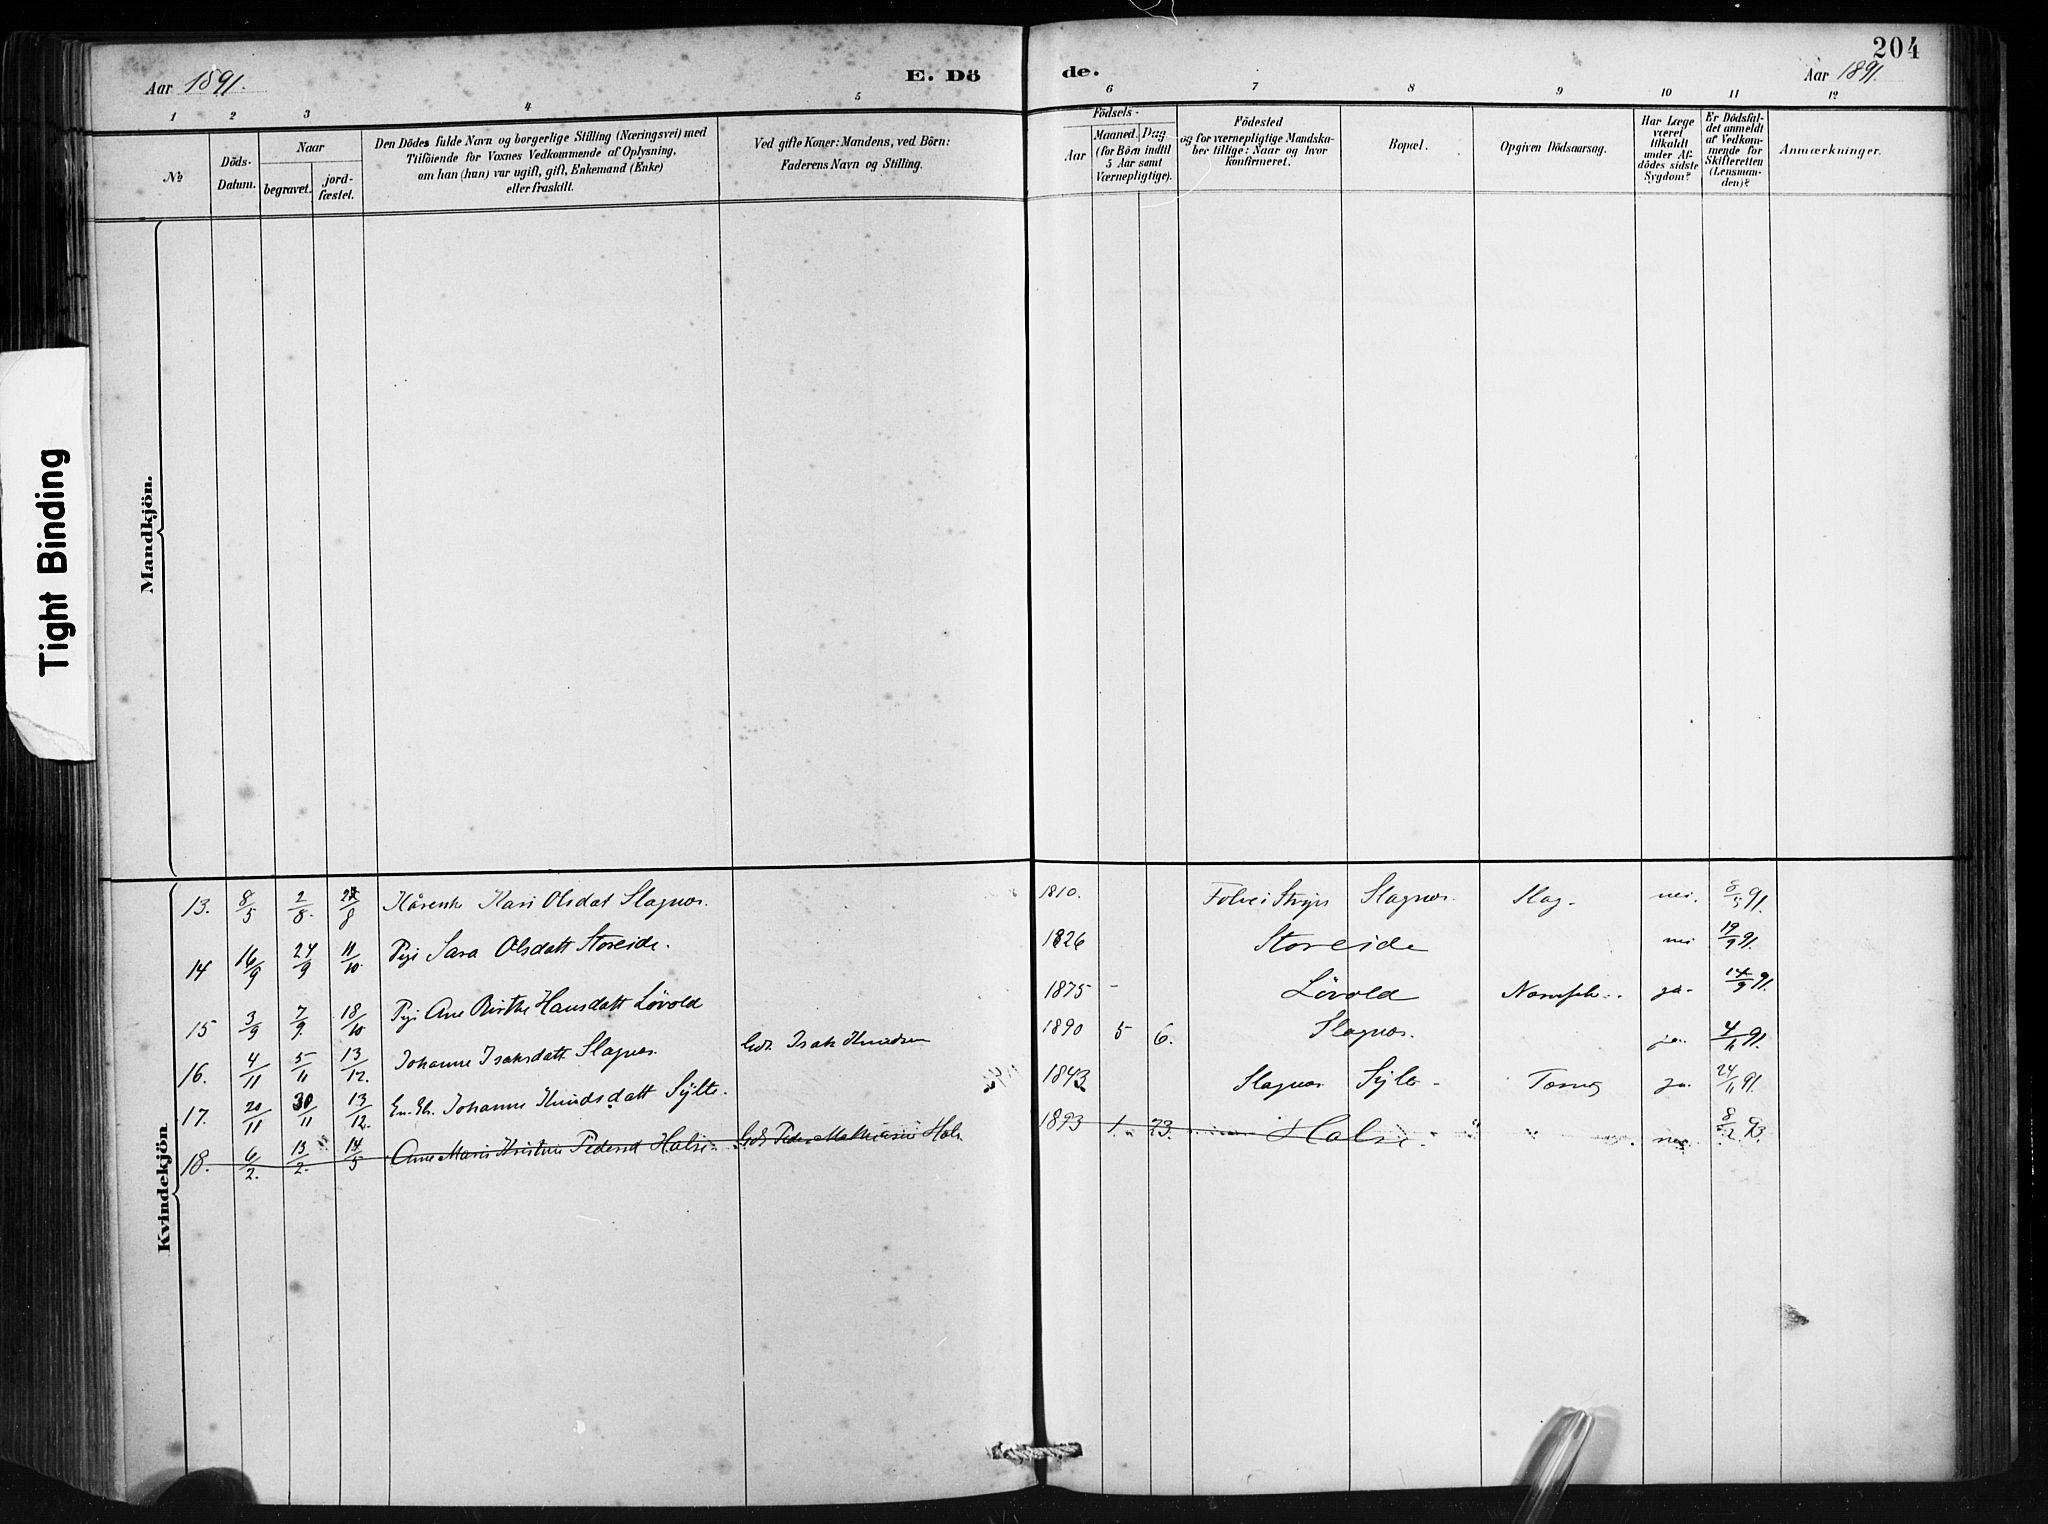 204
Aar 1891.
E. Dö de.
Aar 1891.
1 2 3 4 5 6 7 8 9 10 11 12
No
Döds-
Datum.
Naar
begravet.
jord-
fæstet.
Den Dödes fulde Navn og borgerlige Stilling (Næringsvei) med
Tilföiende for Voxnes Vedkommende af Oplysning,
om han (hun) var ugift, gift, Enkemand (Enke)
eller fraskilt.
Ved gifte Koner: Mandens, ved Börn:
Faderens Navn og Stilling.
Födsels-
Aar
Maaned. Dag
(for Börn indtil
5 Aar samt
Værnepligtige).
Födested
og for værnepligtige Mandska-
ber tillige: Naar og hvor
konfirmeret.
Bopæl.
Opgiven Dödsaarsag.
Har Læge
været
tilkaldt
under Af-
dödes sidste
Sygdom?
Er Dödsfal-
det anmeldt
af Vedkom-
mende for
Skifteretten
(Lensman-
den)?
Anmærkninger.
Tight Binding
Mandkjön.
Kvindekjön.
13. 8/5 2/8. Kari Olsdat Slagnes. 1810. Slagnes. Slag. nei. 8/5 91.
14 16/9 24/9 11/10. Pige Sara Olsdatt Storeide. 1826 Storeide nei 19/9 91.
15 3/9 7/9. 18/10 Pige Ane Birthe Hansdatt Lövold 1875 Lövold ja. 14/9 91.
16. 4/11 5/11 13/12. Johanne Isaksdatt Slagnes. Gdr. Isak Knudsen 1890 5 6. Slagnes. ja. 4/11 91.
17. 20/11 30/11 13/12. Johanne Knudsdatt Sylte. 1843 Slagnes Sylte ja. 24/11 91.
18. 6/2. 13/2. 14/5 Ane Marie Kristine Pedersd Halse Gdr Peder Mathiasen Hals 1893 1. 23. Halse. nei 8/2 93.